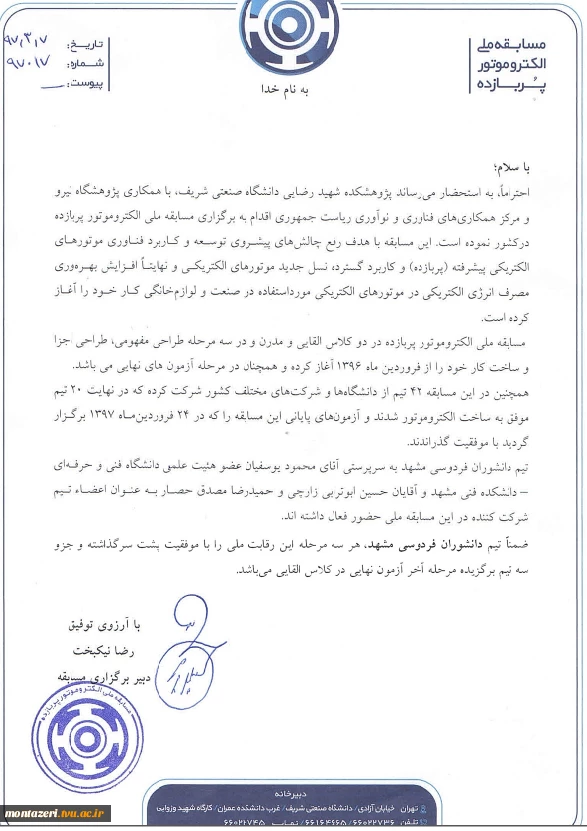 مسابقه ملی
الکتروموتور
پُربازده
تاریخ: ۹۷٫۳٫۷
شماره: ۹۷۰۱۷
پیوست:
به نام خدا
با سلام؛
احتراماً، به استحضار می‌رساند پژوهشکده شهید رضایی دانشگاه صنعتی شریف، با همکاری پژوهشگاه نیرو
و مرکز همکاری‌های فناوری و نوآوری ریاست جمهوری اقدام به برگزاری مسابقه ملی الکتروموتور پربازده
درکشور نموده است. این مسابقه با هدف رفع چالش‌های پیشروی توسعه و کاربرد فناوری موتورهای
الکتریکی پیشرفته (پربازده) و کاربرد گسترد، نسل جدید موتورهای الکتریکی و نهایتاً افزایش بهره‌وری
مصرف انرژی الکتریکی در موتورهای الکتریکی مورداستفاده در صنعت و لوازم‌خانگی کار خود را آغاز
کرده است.
مسابقه ملی الکتروموتور پربازده در دو کلاس القایی و مدرن و در سه مرحله طراحی مفهومی، طراحی جزا
و ساخت کار خود را از فروردین ماه ۱۳۹۶ آغاز کرده و همچنان در مرحله آزمون های نهایی می باشد.
همچنین در این مسابقه ۴۲ تیم از دانشگاه‌ها و شرکت‌های مختلف کشور شرکت کرده که در نهایت ۲۰ تیم
موفق به ساخت الکتروموتور شدند و آزمون‌های پایانی این مسابقه را که در ۲۴ فروردین‌ماه ۱۳۹۷ برگزار
گردید با موفقیت گذراندند.
تیم دانشوران فردوسی مشهد به سرپرستی آقای محمود یوسفیان عضو هئیت علمی دانشگاه فنی و حرفه‌ای
– دانشکده فنی مشهد و آقایان حسین ابوتربی زارچی و حمیدرضا مصدق حصار به عنوان اعضاء تیم
شرکت کننده در این مسابقه ملی حضور فعال داشته اند.
ضمناً تیم دانشوران فردوسی مشهد، هر سه مرحله این رقابت ملی را با موفقیت پشت سرگذاشته و جزو
سه تیم برگزیده مرحله آخر آزمون نهایی در کلاس القایی می‌باشد.
با آرزوی توفیق
رضا نیکبخت
دبیر برگزاری مسابقه
مسابقه ملی الکتروموتور پربازده
دبیرخانه
تهران خیابان آزادی/ دانشگاه صنعتی شریف/ غرب دانشکده عمران/ کارگاه شهید وزوایی
تلفن ۶۶۰۲۲۷۳۶ /۶۶۱۶۴۶۶۵ نمابر ۶۶۰۲۱۷۴۵
montazeri.tvu.ac.ir